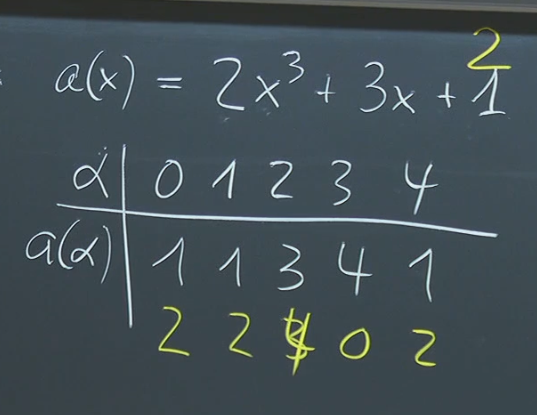 2
a(x) = 2x³ + 3x + 1
α 0 1 2 3 4
a(α) 1 1 3 4 1
2 2 4 0 2